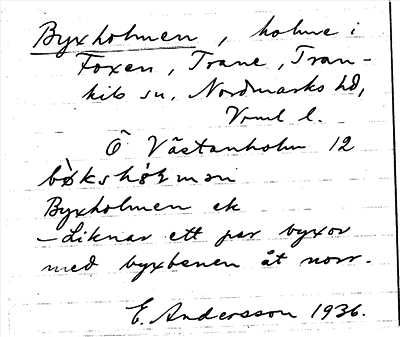 Byxholmen, holme i
Foxen, Trane, Tran-
kils sn, Nordmarks hd,
Vrml l.
Ö Västanholm 12
Byxholmen ek
– Liknar ett par byxor
med byxbenen åt norr.
E. Andersson 1936.